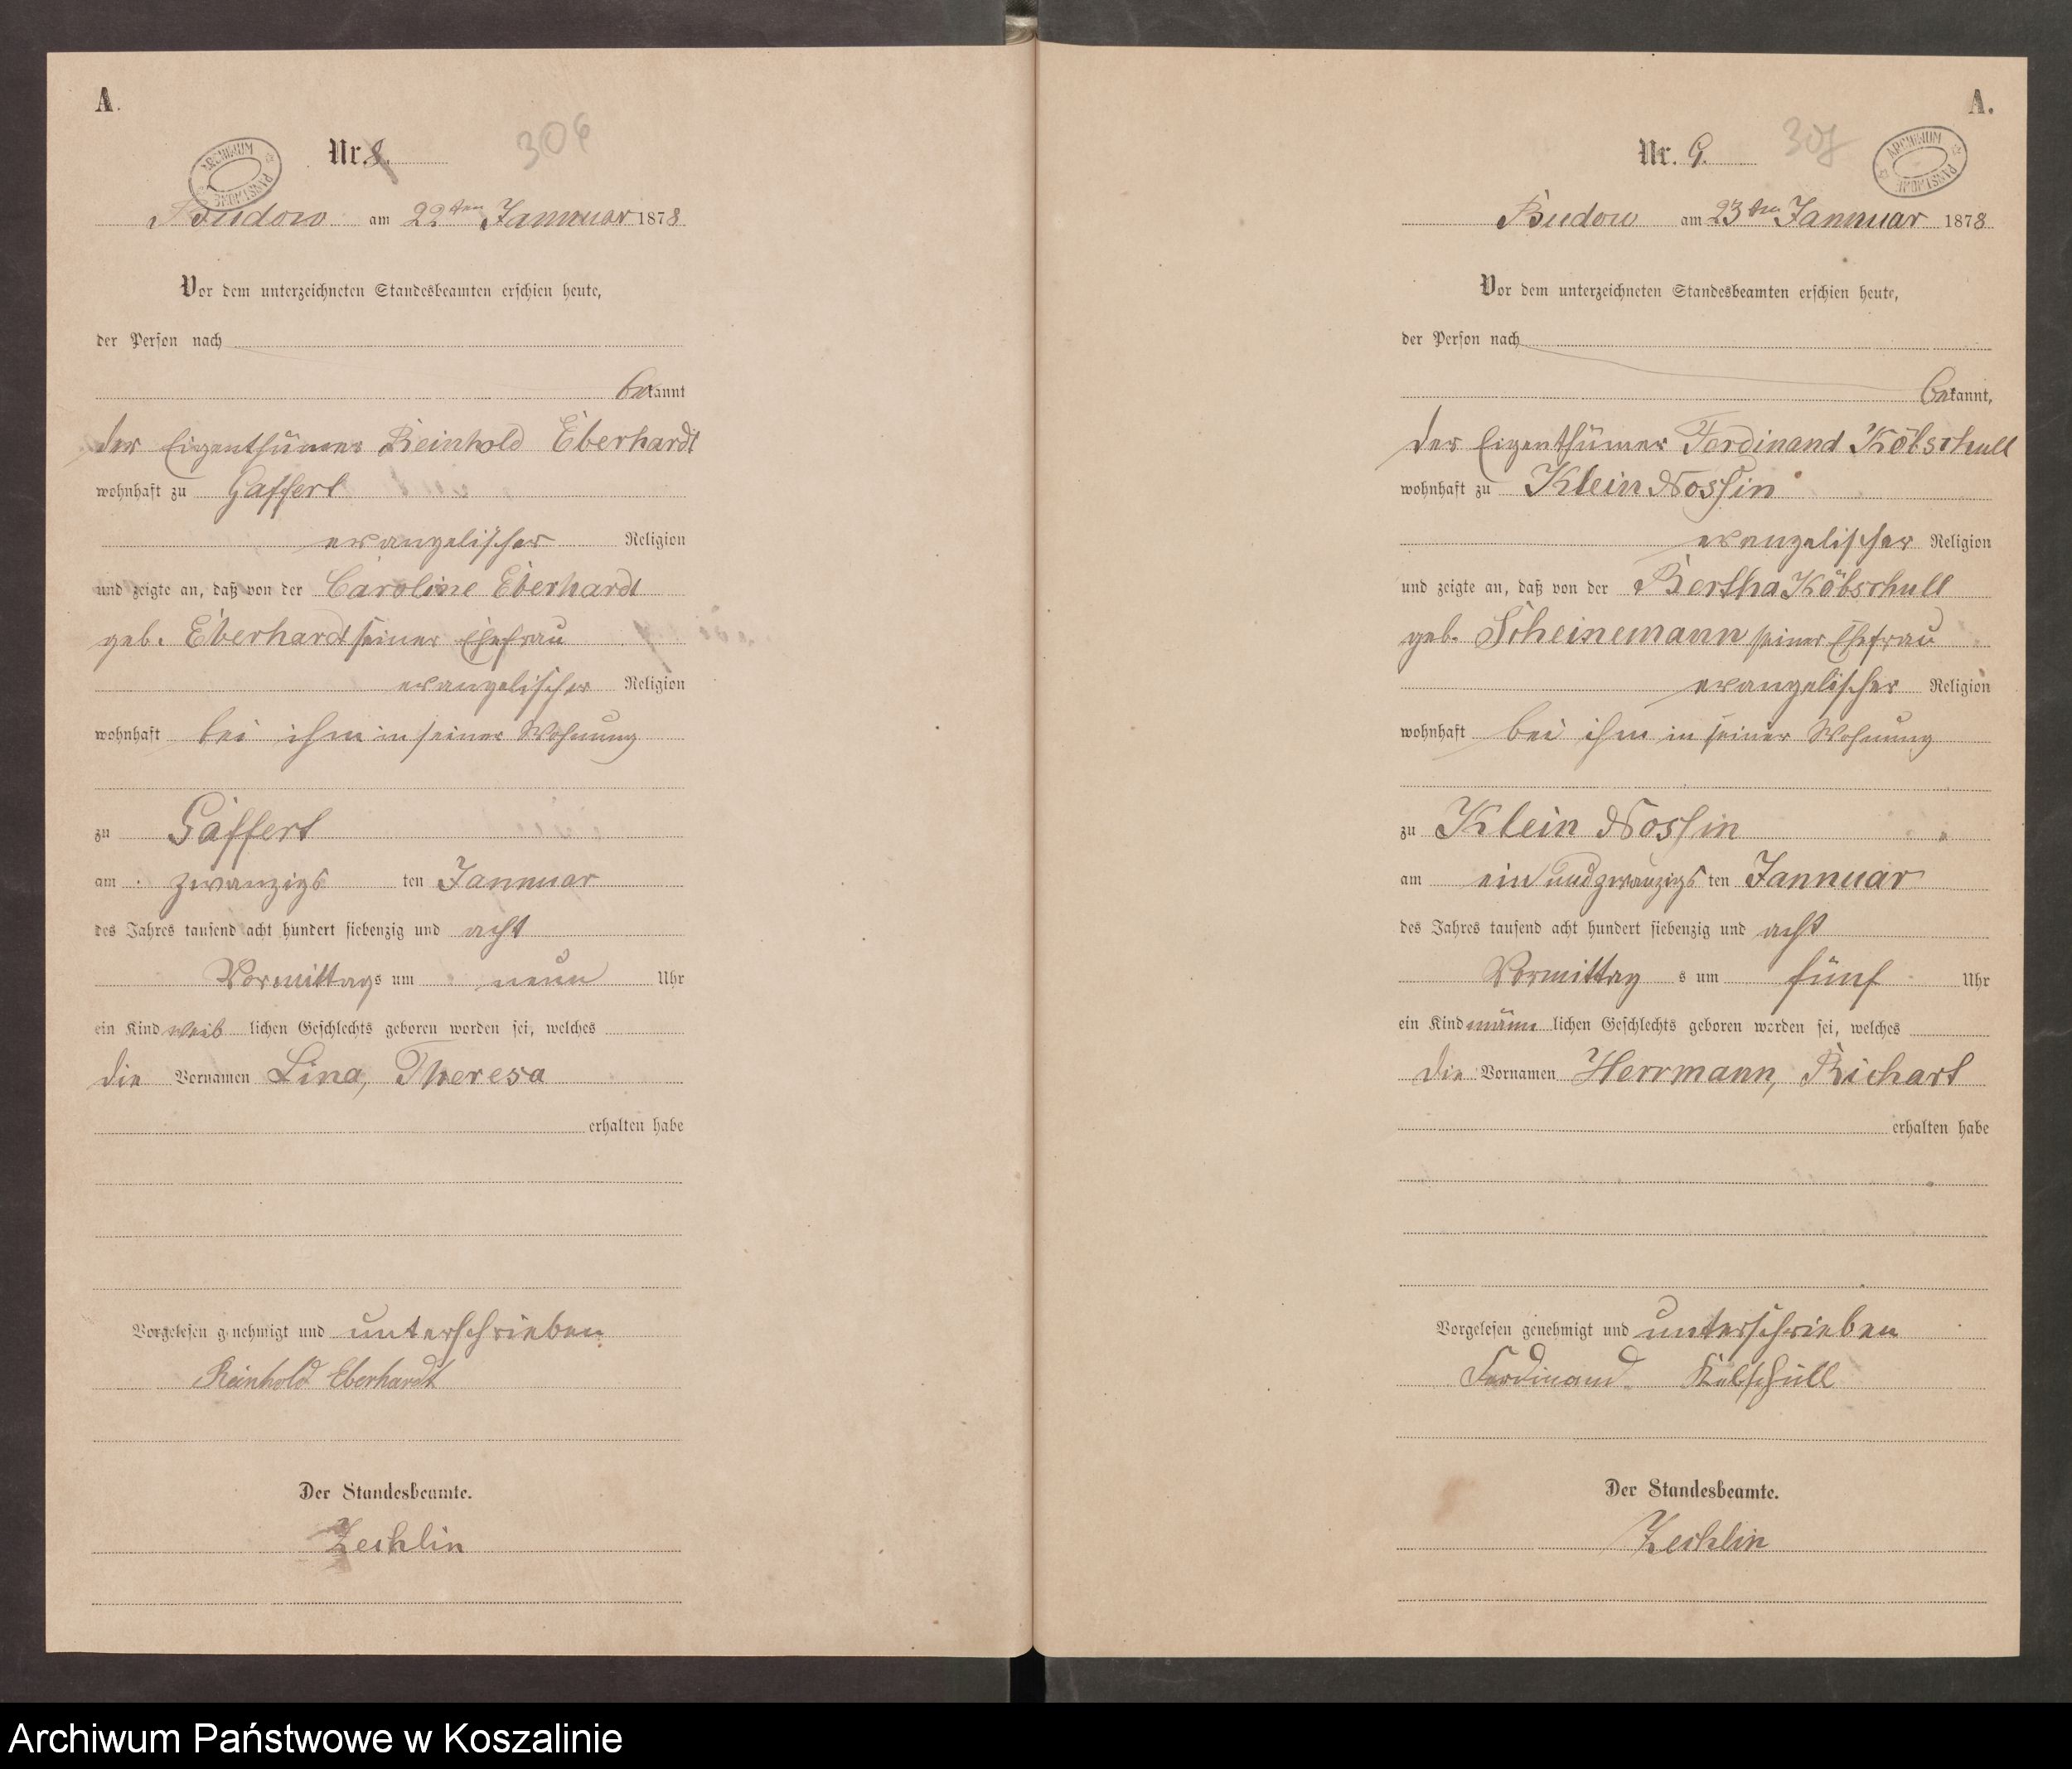 A.
Nr. 8.
306
ARCHIWUM PAŃSTWOWE
Budow am 22ten Jannuar 1878
Vor dem unterzeichneten Standesbeamten erschien heute,
der Person nach
bekannt
der Eigenthümer Reinhold Eberhardt
wohnhaft zu Gaffert
evangelischer Religion
und zeigte an, daß von der Caroline Eberhardt
geb. Eberhardt seiner Ehefrau
evangelischer Religion
wohnhaft bei ihm in seiner Wohnung
zu Gaffert
am zwanzigs ten Jannuar
des Jahres tausend acht hundert siebenzig und acht
Vormittags um neun Uhr
ein Kind weib lichen Geschlechts geboren worden sei, welches
die Vornamen Lina, Theresa
erhalten habe
Vorgelesen genehmigt und unterschrieben
Reinhold Eberhardt
Der Standesbeamte.
Zechlin
A.
Nr. 9.
307
ARCHIWUM PAŃSTWOWE
Budow am 23ten Jannuar 1878
Vor dem unterzeichneten Standesbeamten erschien heute,
der Person nach
bekannt,
der Eigenthümer Ferdinand Köbschull
wohnhaft zu Klein Nossin
evangelischer Religion
und zeigte an, daß von der Bertha Köbschull
geb. Scheinemann seiner Ehefrau
evangelischer Religion
wohnhaft bei ihm in seiner Wohnung
zu Klein Nossin
am ein und zwanzigs ten Jannuar
des Jahres tausend acht hundert siebenzig und acht
Vormittag s um fünf Uhr
ein Kind männ lichen Geschlechts geboren worden sei, welches
die Vornamen Herrmann, Richart
erhalten habe
Vorgelesen genehmigt und unterschrieben
Ferdinand Kebschull
Der Standesbeamte.
Zechlin
Archiwum Państwowe w Koszalinie